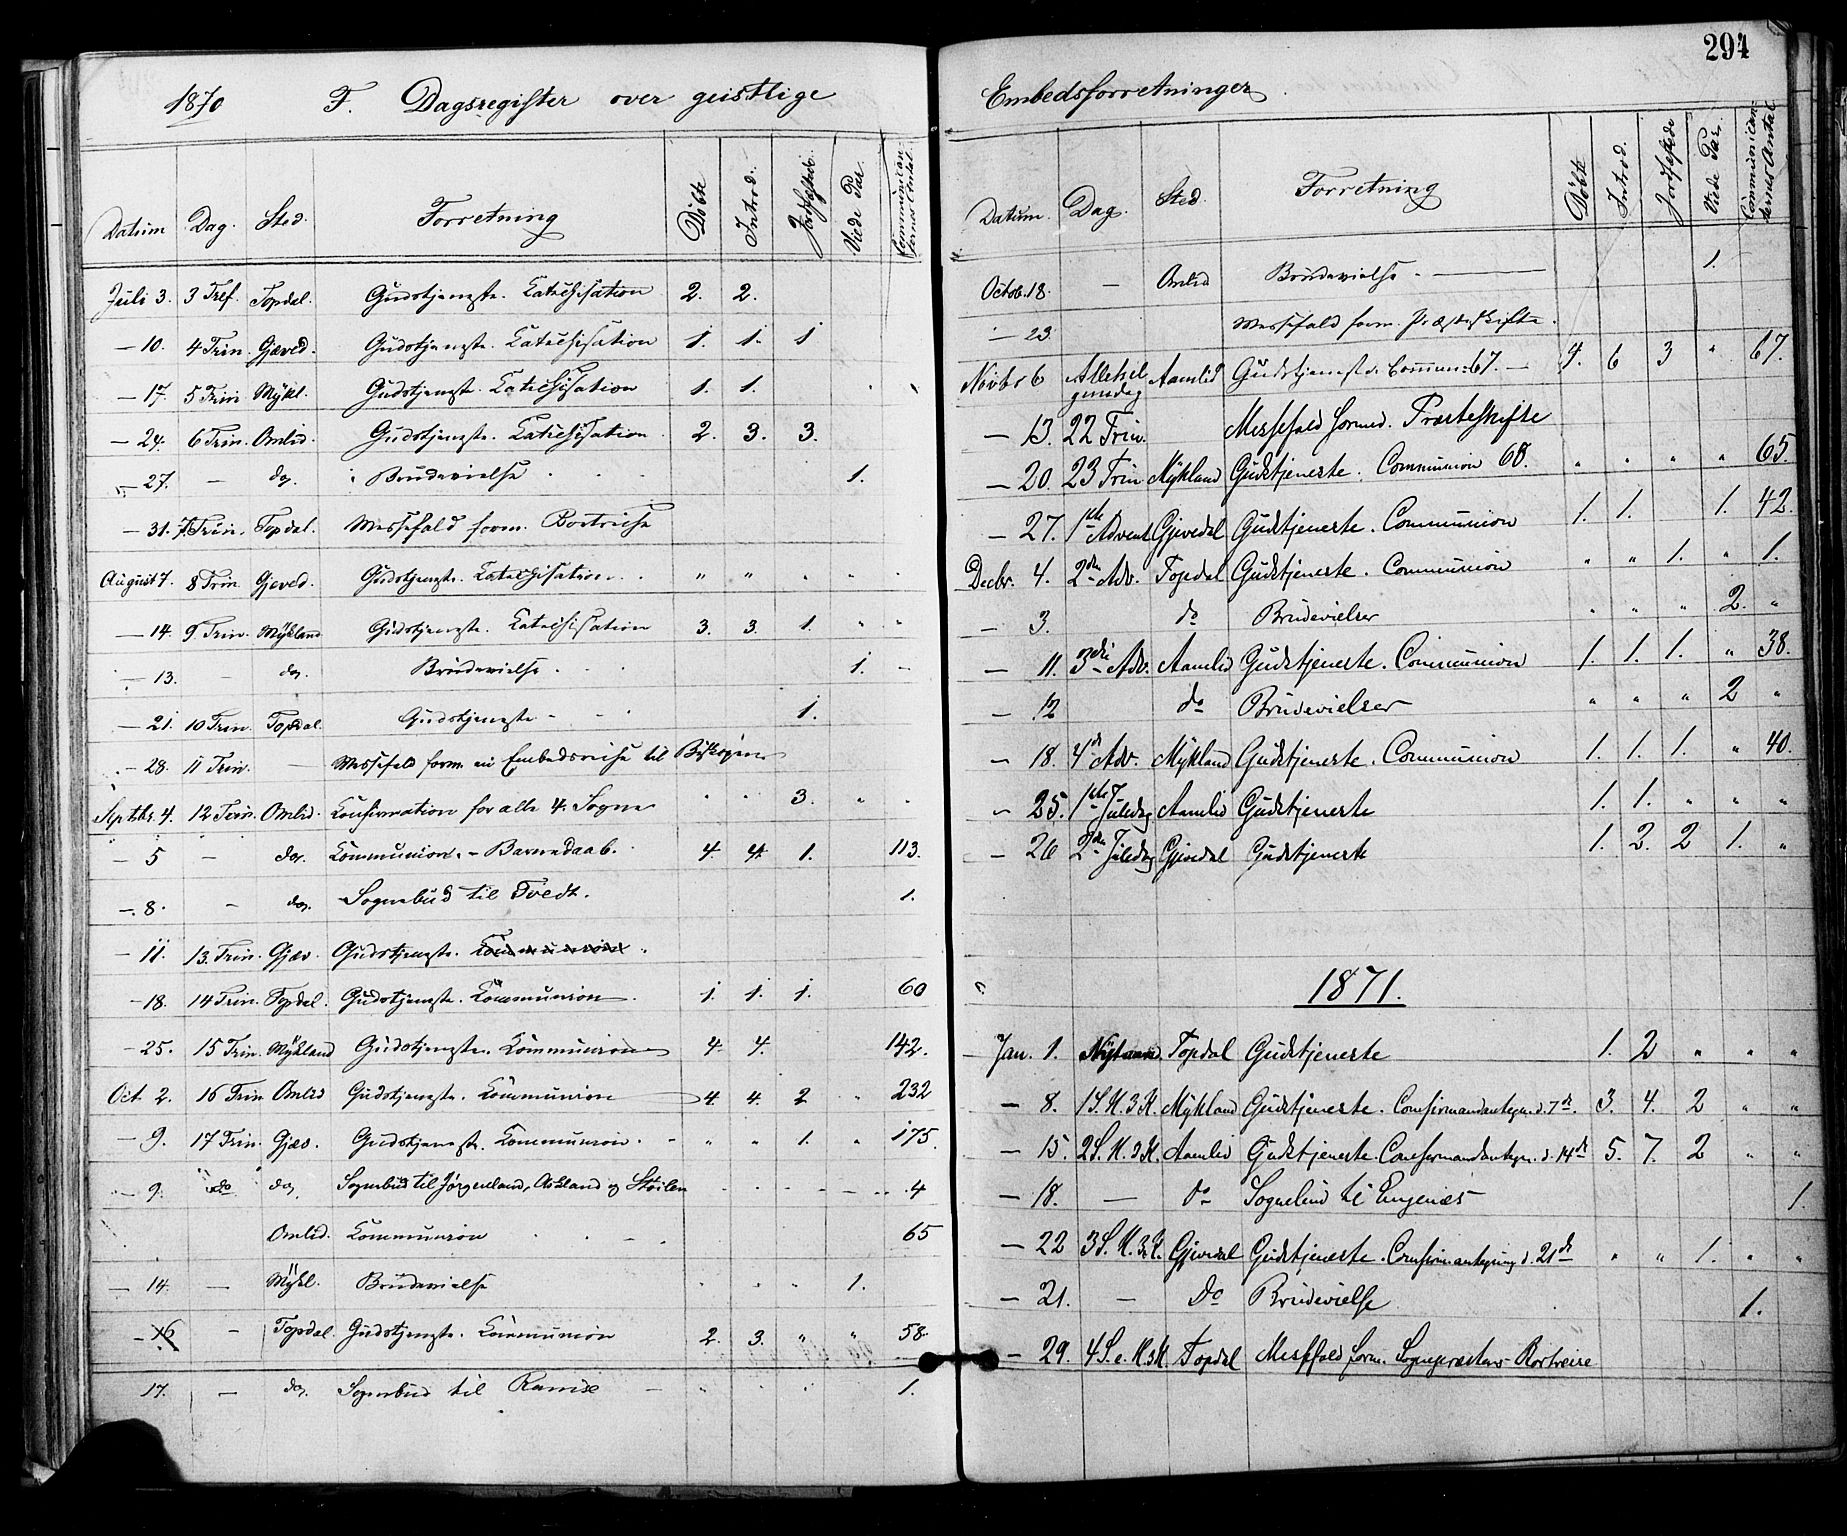 1870 F. Dagsregister over geistlige
Datum Dag. Sted. Forretning Døbte Introd. Jordfæstede Viede Par. Communicanternes Antal
Juli 3. 3 Tref. Topdal. Gudstjeneste. Catechisation 2. 2.
— 10. 4 Trin. Gjæved. Gudstjeneste. Catechisation 1. 1. 1
— 17. 5 Trin Mykl. Gudstjeneste. Catechisation 1. 1.
— 24. 6 Trin. Omlid. Gudstjeneste. Catechisation 2. 3. 3.
— 27. — do. Brudevielse 1.
— 31. 7. Trin. Topdal. Messefald form. Bortreise
August 7. 8 Trin. Gjeved. Gudstjeneste. Catechisation. " " " " "
— 14. 9. Trin. Mykland Gudstjeneste. Catechisation 3. 3. 1. " "
— 13. — do. Brudevielse 1. —
— 21. 10 Trin. Topdal. Gudstjeneste 1.
— 28. 11 Trin. — Messefald form. en Embedsreise til Byskogen
Septbr. 4. 12 Trin. Omlid. Confirmation for alle 4 Sogne " " 3. " "
— 5 — do. Communion. – Barnedaab. 4. 4. 1. 113.
— 8. — do. Sognebud til Tvedt. 1.
— 11. 13. Trin. Gjæv. Gudstjeneste. Communion.
— 18. 14 Trin. Topdal. Gudstjeneste. Communion 1. 1. 1. 60
— 25. 15 Trin. Mykland Gudstjeneste. Communion 4. 4. 142.
Oct. 2. 16 Trin Omlid Gudstjeneste. Communion 4. 4. 2 " 232
— 9. 17 Trin. Gjæv. Gudstjeneste. Communion. " " 1. " 175.
— 9. do do. Sognebud til Jørgenland, Askland og Støilen 4
Omlid. Communion 65
— 14. — Mykl. Brudevielse " " " 1.
— 16 — Topdal. Gudstjeneste. Communion 2. 3. " " 58.
17. — do. Sognebud til Ramse " " " 1.
294
Embedsforretninger.
Datum. Dag. Sted. Forretning Døbte Introd. Jordfæstede Viede Par. Communicanternes Antal
Octob. 18. — Omlid Brudevielse. 1.
— 23. Messefald form. Præsteskifte.
Novbr 6 Allehelgensdag Aamlid Gudstjeneste. Commun: 67. — 4. 6 3 " 67.
— 13. 22 Trin. Messefald formed. Præsteskifte
— 20. 23 Trin Mykland Gudstjeneste. Communion 68. " " " " 65.
— 27. 1ste Advent Gjevedal Gudstjeneste. Communion 1. 1. 1. 42.
Decbr. 4. 2den Adv. Topdal Gudstjeneste. Communion " " 1. " 1.
— 3. do Brudevielser " " " 2. "
— 11. 3die Adv. Aamlid Gudstjeneste. Communion 1. 1. 1. " 38.
— 12 do Brudevielser " " " 2 "
— 18. 4de Adv. Mykland Gudstjeneste. Communion 1. 1. 1. " 40.
— 25. 1ste Juledag Aamlid Gudstjeneste 1. 1. " " "
— 26 2den Juledag Gjevedal Gudstjeneste 1. 2. 2 1. "
1871.
— Jan. 1. Nytaarsd. Topdal Gudstjeneste 1. 2 " " "
— 8. 1 S. H. 3 K. Mykland Gudstjeneste. Confirmandantegn. d. 7de. 3. 4. 2 " "
— 15. 2 S. H. 3 K. Aamlid Gudstjeneste. Confirmandantegn. d. 14de 5. 7. 2 " "
— 18. — do Sognebud til Engenæs 1.
— 22 3 S. H. 3 K. Gjevedal Gudstjeneste. Confirmantegning d. 21de " " 1. " "
— 21. — Do Brudevielse 1.
— 29. 4 S. e. H 3 K Topdal Messefald form. Sognepræstens Bortreise